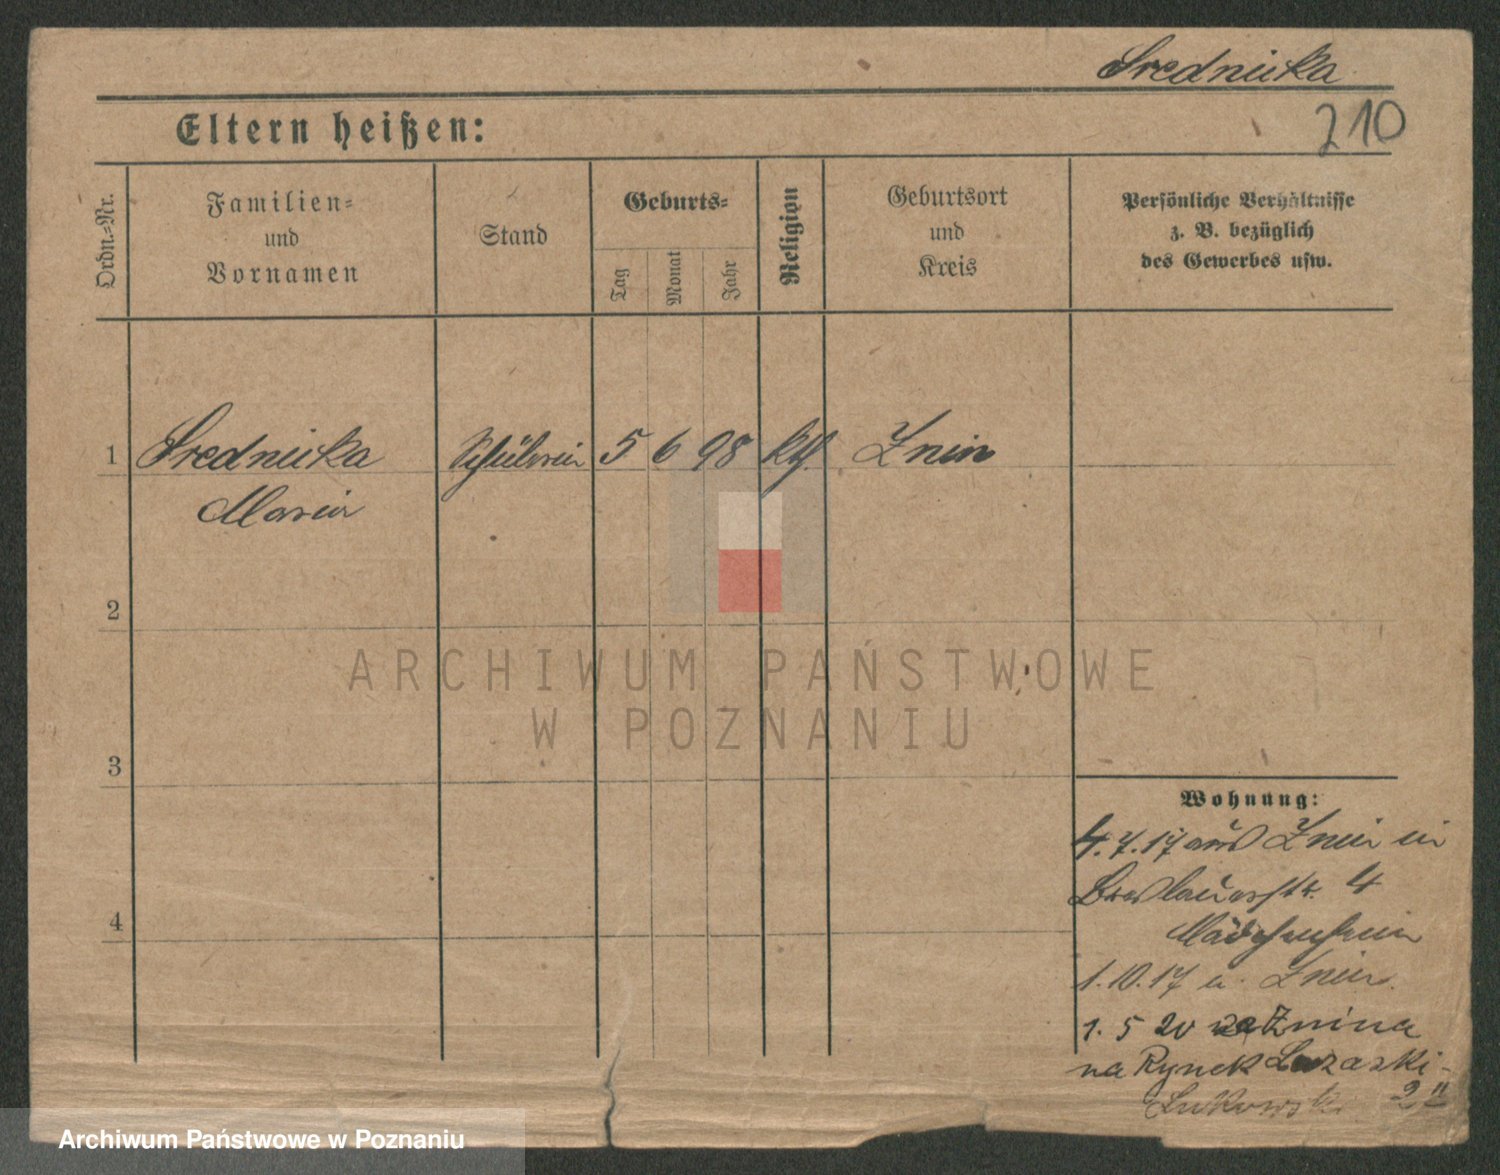 Srednicka
210
Eltern heißen:
Ordn.-Nr.
Familien-
und
Vornamen
Stand
Geburts-
Tag
Monat
Jahr
Religion
Geburtsort
und
Kreis
Persönliche Verhältnisse
z. B. bezüglich
des Gewerbes usw.
1 Srednicka Schülerin 5 6 98 kth. Znin
Maria
2
3
4
ARCHIWUM PAŃSTWOWE
W POZNANIU
Wohnung:
4.7.17 aus Znin in
Breslauerstr. 4
Mädchenheim
1.10.17 n. Znin.
1. 5 20 ze Znina
na Rynek Łazarski
2 II
Archiwum Państwowe w Poznaniu